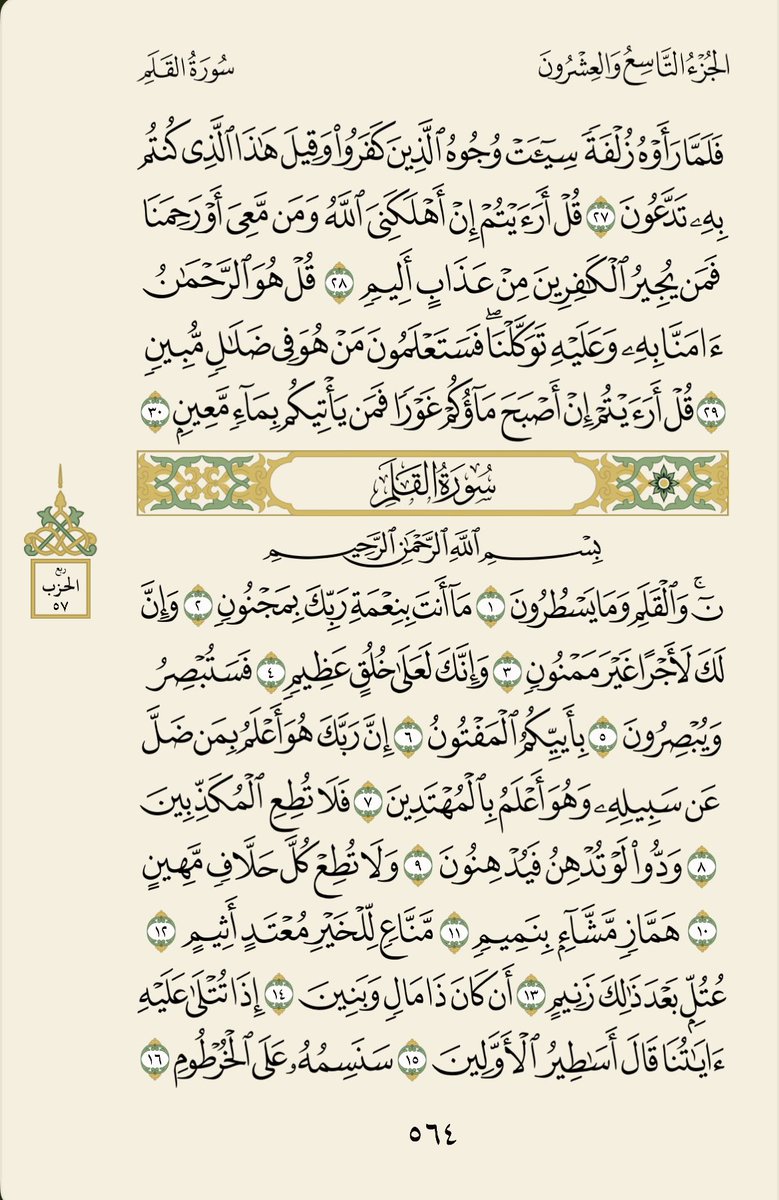 الجزء التاسع والعشرون
سورة القلم
فَلَمَّا رَأَوْهُ زُلْفَةً سِيٓـَٔتْ وُجُوهُ ٱلَّذِينَ كَفَرُوا۟ وَقِيلَ هَٰذَا ٱلَّذِى كُنتُم
بِهِۦ تَدَّعُونَ ٢٧ قُلْ أَرَءَيْتُمْ إِنْ أَهْلَكَنِىَ ٱللَّهُ وَمَن مَّعِىَ أَوْ رَحِمَنَا
فَمَن يُجِيرُ ٱلْكَٰفِرِينَ مِنْ عَذَابٍ أَلِيمٍ ٢٨ قُلْ هُوَ ٱلرَّحْمَٰنُ
ءَامَنَّا بِهِۦ وَعَلَيْهِ تَوَكَّلْنَا ۖ فَسَتَعْلَمُونَ مَنْ هُوَ فِى ضَلَٰلٍ مُّبِينٍ
٢٩ قُلْ أَرَءَيْتُمْ إِنْ أَصْبَحَ مَآؤُكُمْ غَوْرًا فَمَن يَأْتِيكُم بِمَآءٍ مَّعِينٍۭ ٣٠
سُورَةُ القَلَمِ
بِسْمِ ٱللَّهِ ٱلرَّحْمَٰنِ ٱلرَّحِيمِ
ربع
الحزب
٥٧
نٓ ۚ وَٱلْقَلَمِ وَمَا يَسْطُرُونَ ١ مَآ أَنتَ بِنِعْمَةِ رَبِّكَ بِمَجْنُونٍ ٢ وَإِنَّ
لَكَ لَأَجْرًا غَيْرَ مَمْنُونٍ ٣ وَإِنَّكَ لَعَلَىٰ خُلُقٍ عَظِيمٍ ٤ فَسَتُبْصِرُ
وَيُبْصِرُونَ ٥ بِأَييِّكُمُ ٱلْمَفْتُونُ ٦ إِنَّ رَبَّكَ هُوَ أَعْلَمُ بِمَن ضَلَّ
عَن سَبِيلِهِۦ وَهُوَ أَعْلَمُ بِٱلْمُهْتَدِينَ ٧ فَلَا تُطِعِ ٱلْمُكَذِّبِينَ
٨ وَدُّوا۟ لَوْ تُدْهِنُ فَيُدْهِنُونَ ٩ وَلَا تُطِعْ كُلَّ حَلَّافٍ مَّهِينٍ
١٠ هَمَّازٍ مَّشَّآءٍۭ بِنَمِيمٍ ١١ مَّنَّاعٍ لِّلْخَيْرِ مُعْتَدٍ أَثِيمٍ ١٢
عُتُلٍّۭ بَعْدَ ذَٰلِكَ زَنِيمٍ ١٣ أَن كَانَ ذَا مَالٍ وَبَنِينَ ١٤ إِذَا تُتْلَىٰ عَلَيْهِ
ءَايَٰتُنَا قَالَ أَسَٰطِيرُ ٱلْأَوَّلِينَ ١٥ سَنَسِمُهُۥ عَلَى ٱلْخُرْطُومِ ١٦
٥٦٤